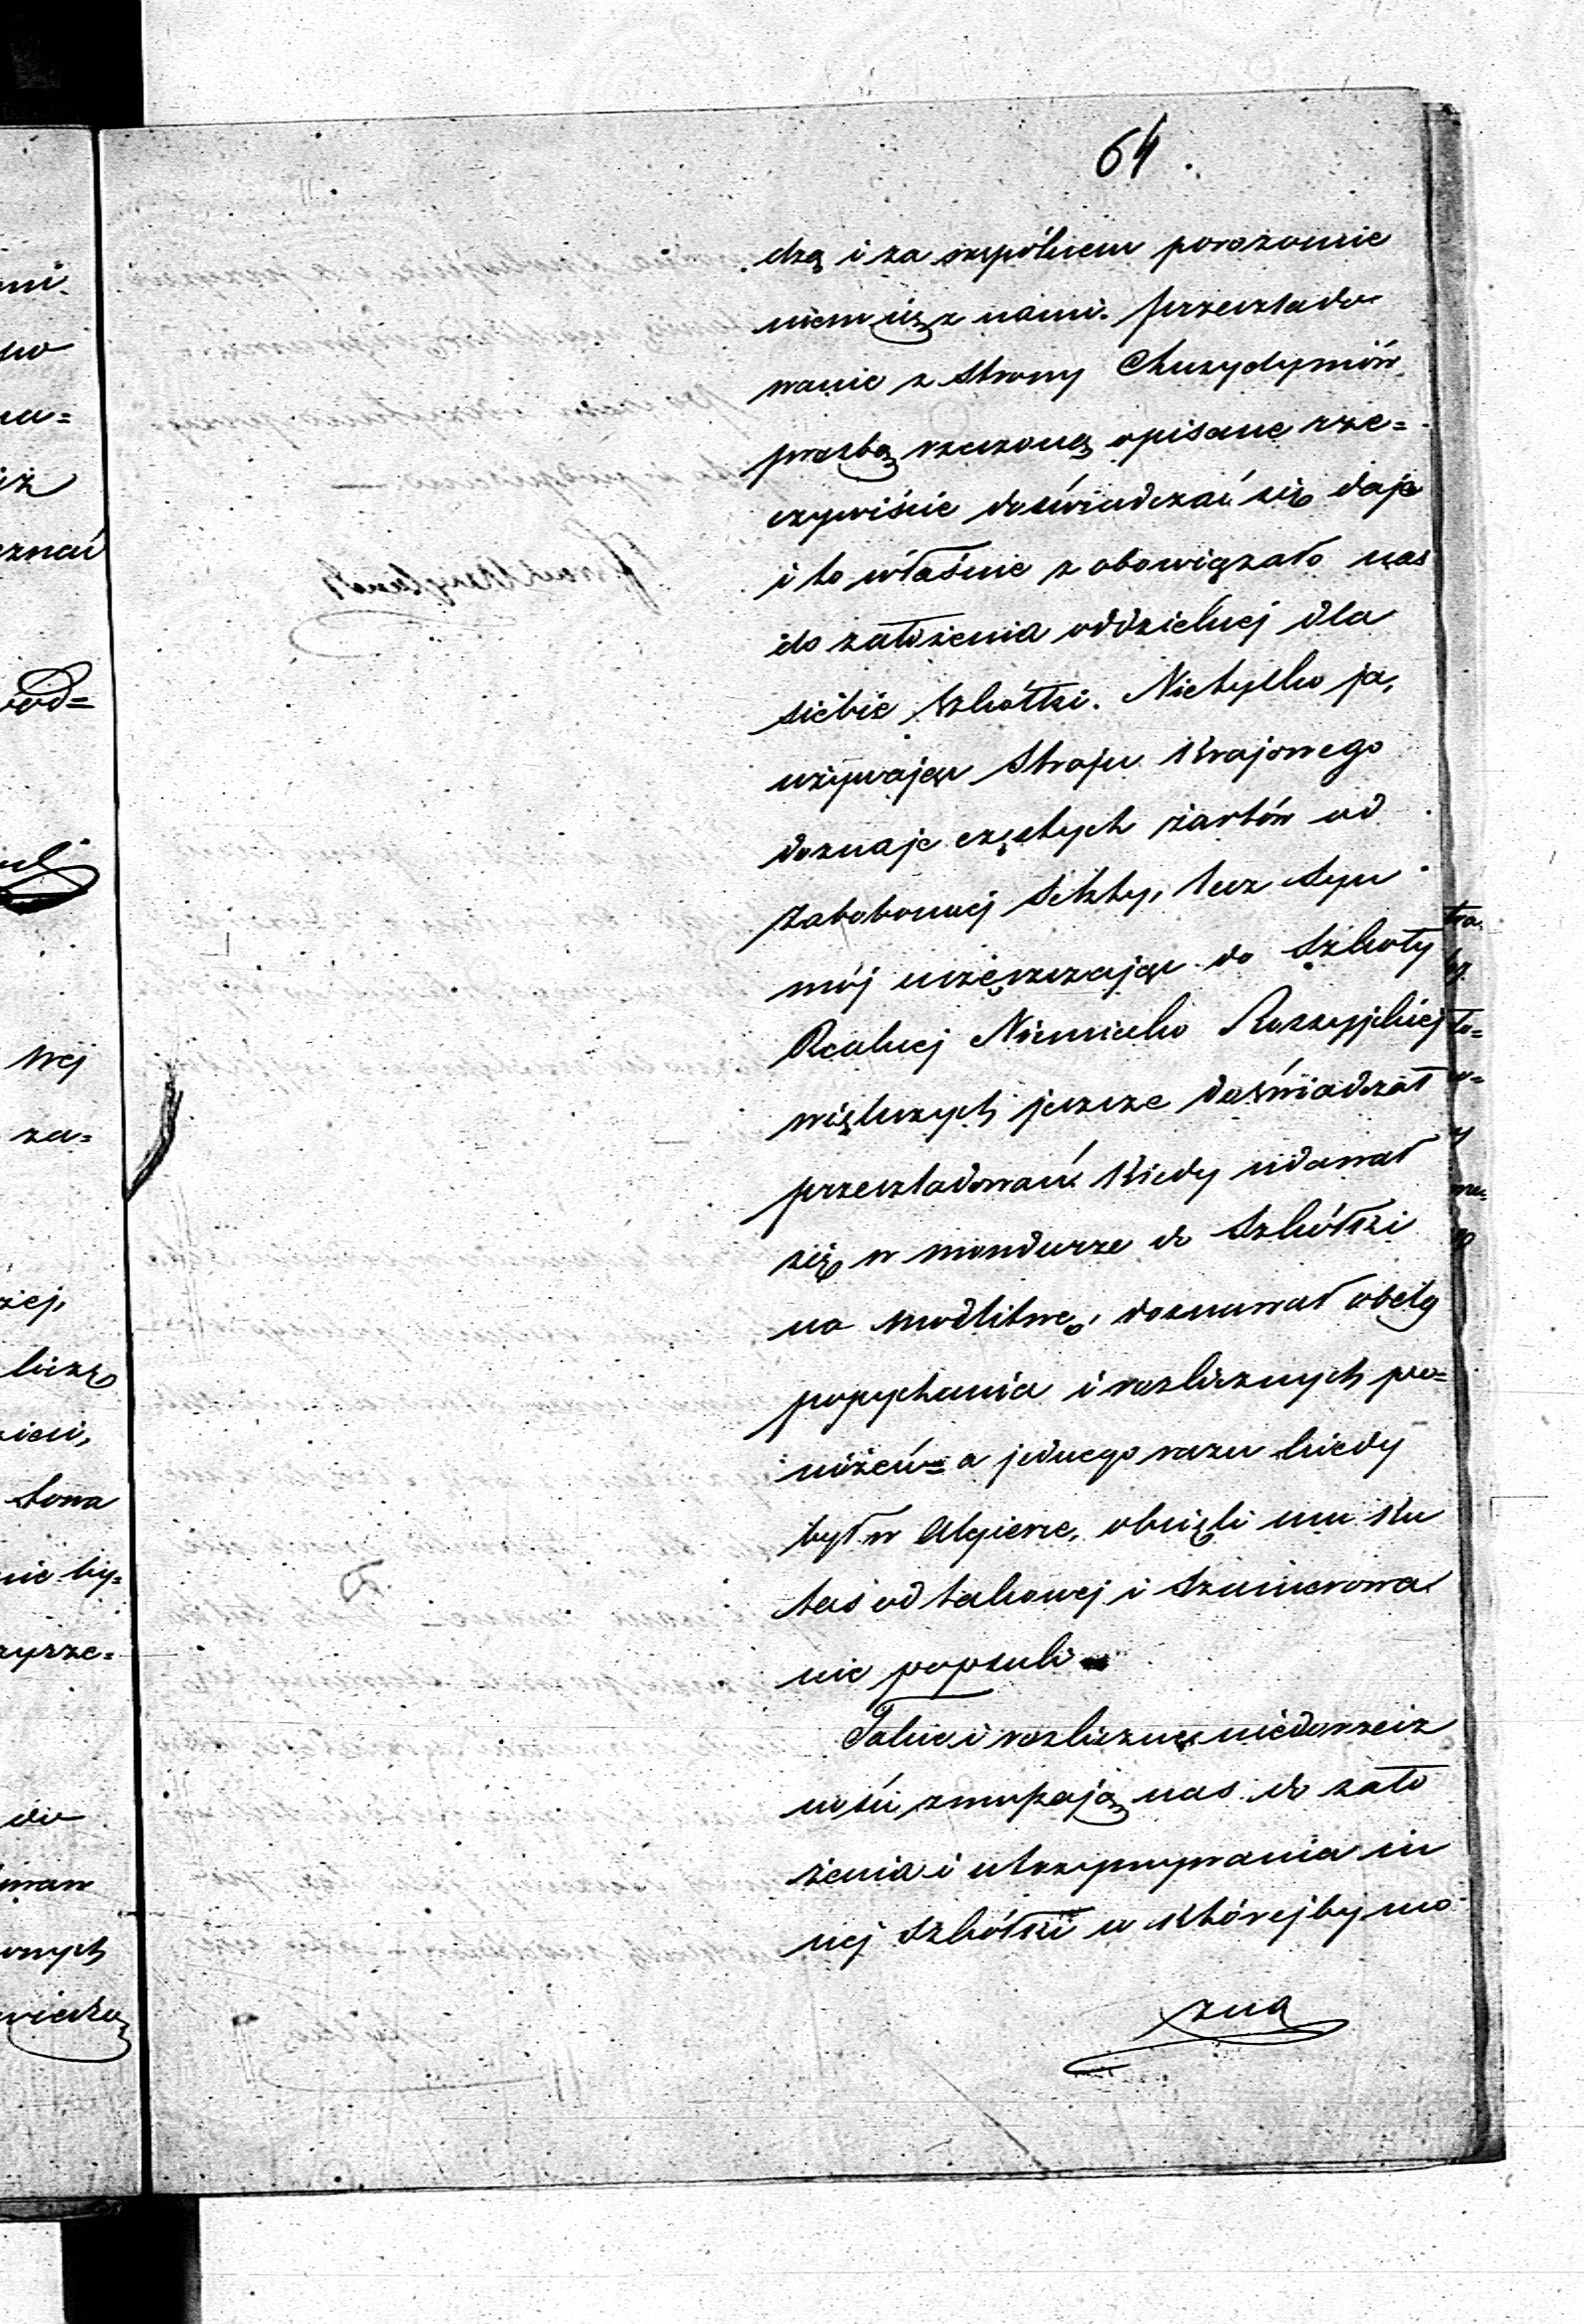 64.
dzą i za wspólnem porozomie
niem się z nami. przesladо-
wanie z strony Chuzydymów,
prozbą rzeczoną opisane rze=
czywiście doświadczać się daje
i to właśnie zobowiązało nas
do założenia oddzielnej dla
siebie Szkółki. Nietylko ja,
używając Stroju Krajowego
doznaje częstych żartów od
zabobonnej Sekty, lecz Syn
mój uczęszczając do Szkoły
Realnej Niemiecko Rossyjskiej
większych jeszcze doświadczał
przesladowań Kiedy udawał
się w mondurze do Szkółki
na modlitwę, doznawał obelg
popychania i rozlicznych po=
niżeń= a jednego razu kiedy
był w obcięli mu Ku
tas od takowej i Szamerowa
nie popsuli
Takie i rozliczne niedorzecz
ności zmuszają nas do zało
żenia i utrzymywania in
nej Szkółki w Którejby mo
żna
mi.
wo
na=
iż
eznać
wód=
wej
za=
ziej,
liczę
sieci,
towa
nie by=
zyrze=
do
onych